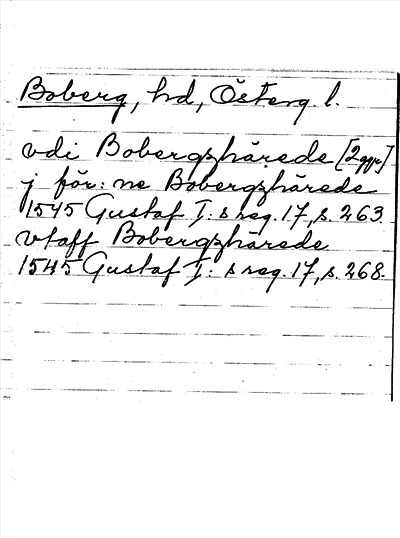 Boberg, hd, Österg. l.
vdi Bobergzhärede [2ggr]
j för: ne Bobergzhärede
1545 Gustaf I: s reg. 17, s. 263.
vtaff Bobergzhärede
1545 Gustaf I: s reg. 17, s. 268.